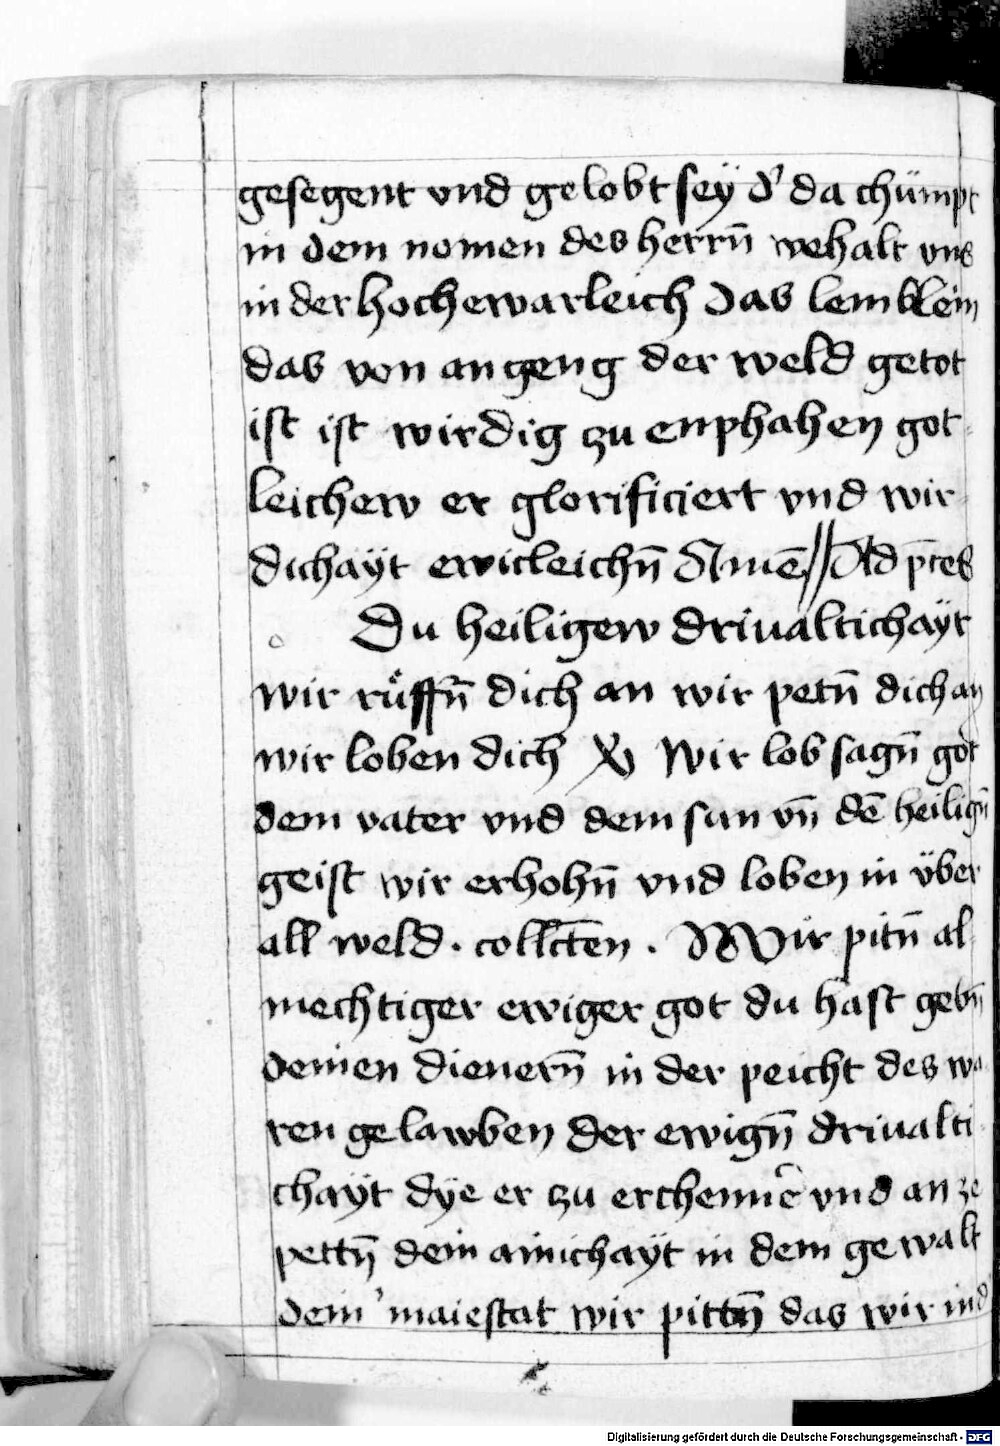 gesegent vnd gelobt sey d' da chümpt
in dem nomen des herrn̄ wehalt vns
in der hochewarleich das lemblein
das von angeng der weld getot
ist ist wirdig zu enphahen got-
leichew er glorificiert vnd wir-
dichaÿt ewicleichn̄ Amē // Ad p̄ces
Du heiligew driualtichaÿt
wir rüffn̄ dich an wir petn̄ dich an
wir loben dich Wir lob sagn̄ got
dem vater vnd dem sun vn̄ dē heilign̄
geist wir erhohn̄ vnd loben in über
all weld . collcten . Wir pitn̄ al-
mechtiger ewiger got du hast gebn̄
deinen dienern̄ in der peicht des wa-
ren gelawben der ewign̄ driualti-
chaÿt dÿe er zu erchennē vnd an ze
pettn̄ dein ainichaÿt in dem gewalt
dein' maiestat wir pittn̄ das wir in d
Digitalisierung gefördert durch die Deutsche Forschungsgemeinschaft - DFG